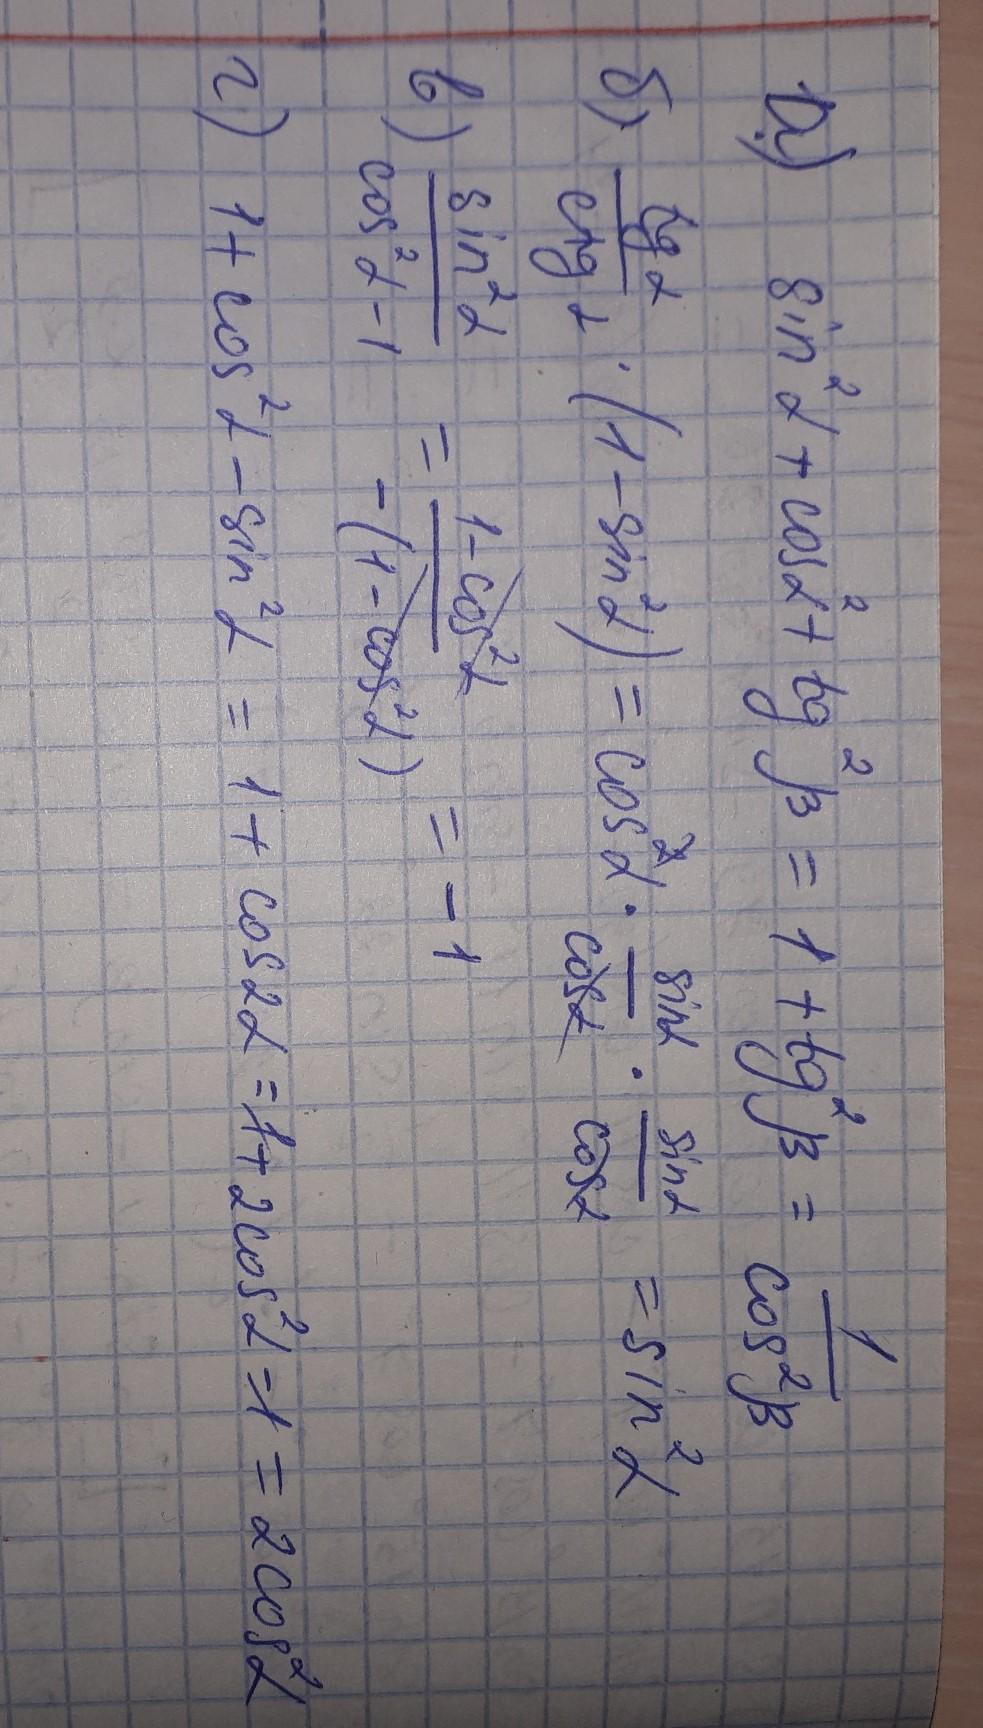 а) sin²α + cos²α + tg²β = 1 + tg²β = 1/cos²β
б) tgα/ctgα · (1 - sin²α) = cos²α · sinα/cosα · sinα/cosα = sin²α
в) sin²α/cos²α-1 = 1-cos²α/-(1-cos²α) = -1
г) 1 + cos²α - sin²α = 1 + cos2α = 1 + 2cos²α - 1 = 2cos²α